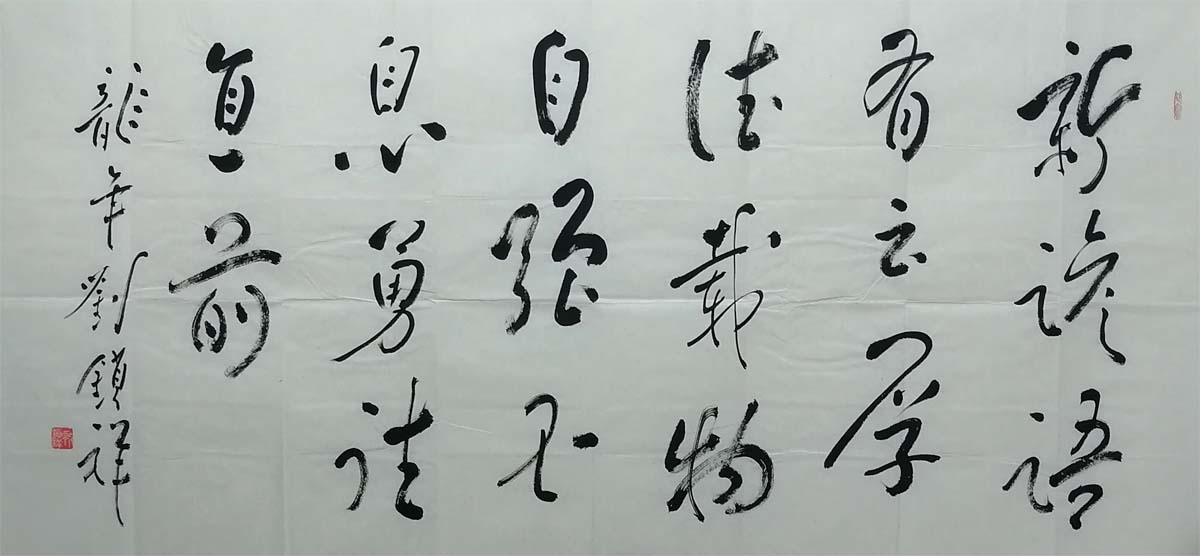 新谚语
有云厚
德載物
自强不
息勇往
直前
龍年劉鎖祥